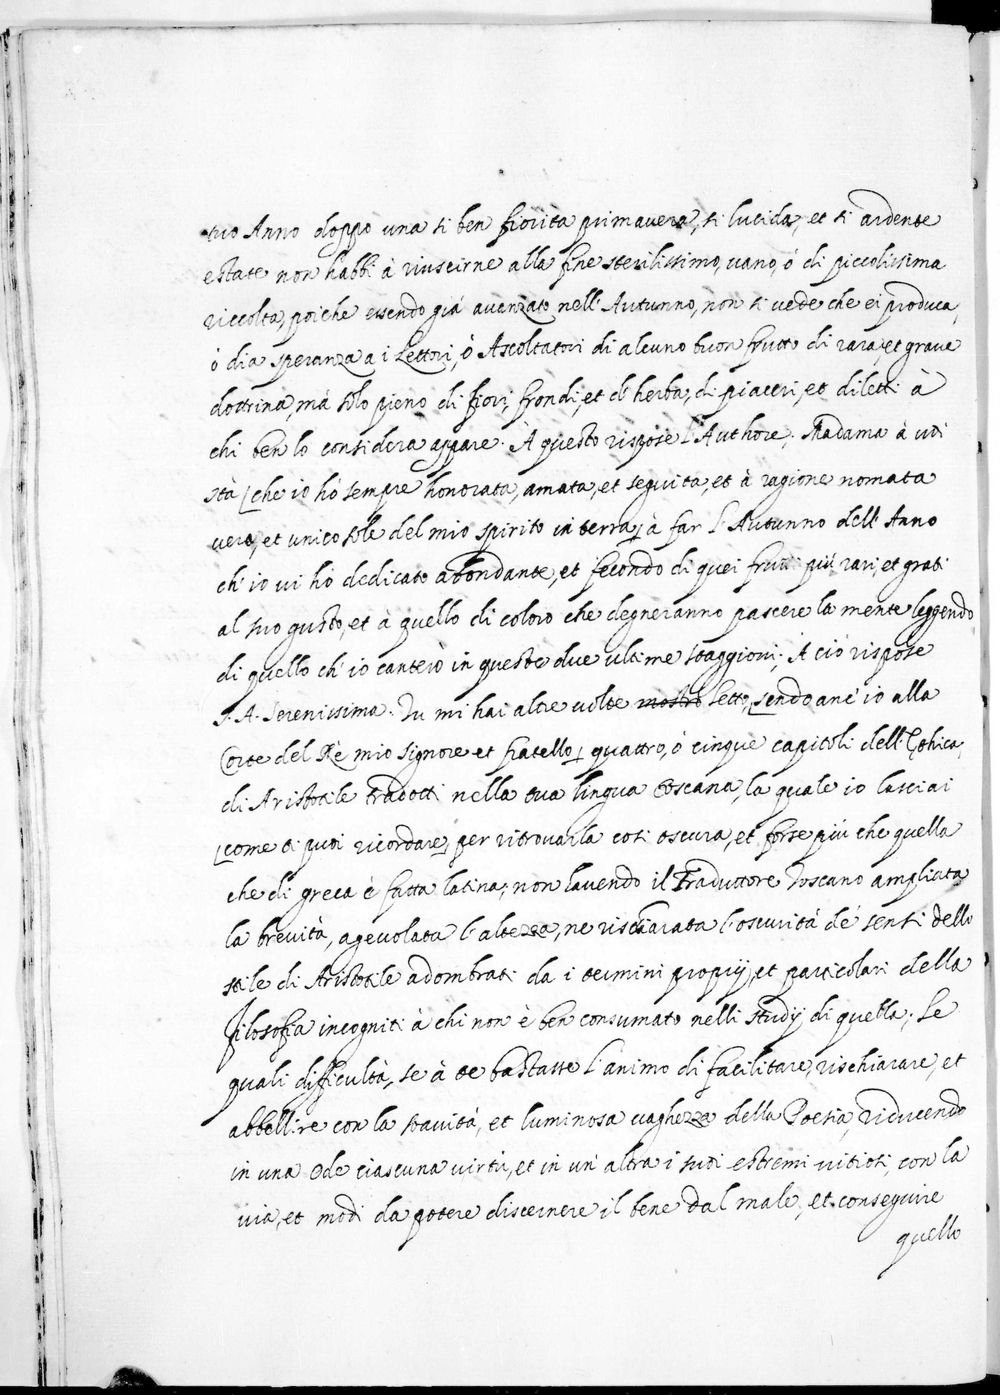 tuo Anno doppo una sì ben fiorita primavera, sì lucida, et sì ardente
estate non habbi à riuscirne alla fine sterilissimo, vano, ó di piccolissima
riccolta, poiche essendo già avanzato nell'Autunno, non si vede che ei produca,
ó dia speranza a i Lettori, ó Ascoltatori di alcuno buon frutto di rara, et grave
dottrina, mà solo pieno di fiori, frondi, et d'herba, di piaceri, et diletti à
chi ben lo considera appare. À questo rispose l'Authore; Madama à voi
stà [che io hò sempre honorata, amata, et seguita, et à ragione nomata
vero, et unico sole del mio spirito in terra] à far l'Autunno dell'Anno
ch'io vi hò dedicato abondante, et fecondo di quei frutti più rari, et grati
al suo gusto, et à quello di coloro che degneranno pascere la mente leggendo
di quello ch'io canterò in queste due ultime staggioni; À ciò rispose
S. A. Serenissima. Tu mi hai altre volte mostro letto, [sendo anc'io alla
Corte del Rè mio Signore et fratello] quattro, ó cinque capitoli dell'Ethica
di Aristotile tradotti nella tua lingua toscana, la quale io lasciai
[come ti puoi ricordare] per ritrovarla così oscura, et forse più che quella
che di greca è fatta latina; non havendo il Traduttore Toscano ampliata
la brevità, agevolata l'altezza, ne rischiarata l'oscurità de' sensi dello
stile di Aristotile adombrati da i termini proprij, et particolari della
Filosofia incogniti à chi non è ben consumato nelli studij di quella; Le
quali difficultà, se à te bastasse l'animo di facilitare, rischiarare, et
abbellire con la soavità, et luminosa vaghezza della Poesia, riducendo
in una Ode ciascuna virtù, et in un'altra i suoi estremi vitiosi, con la
via, et modi da potere discernere il bene dal male, et conseguire
quello